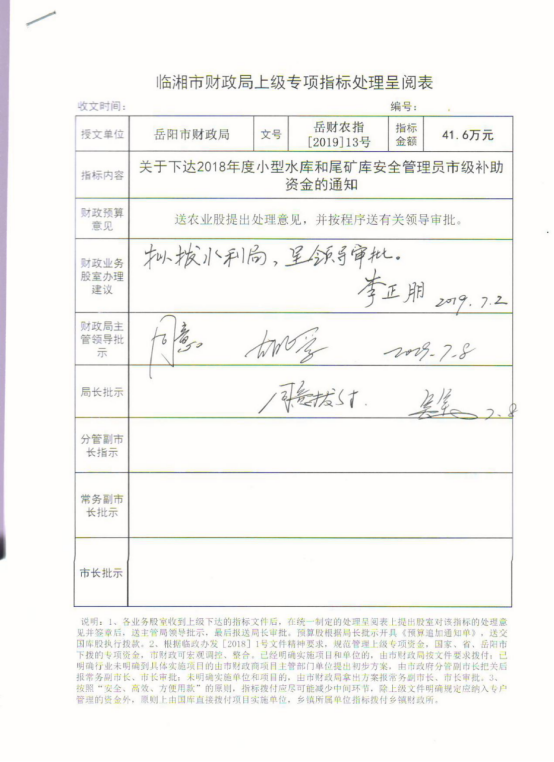 临湘市财政局上级专项指标处理呈阅表
收文时间： 编号：
授文单位 岳阳市财政局 文号 岳财农指[2019]13号 指标金额 41.6万元
指标内容 关于下达2018年度小型水库和尾矿库安全管理员市级补助
资金的通知
财政预算意见 送农业股提出处理意见，并按程序送有关领导审批。
财政业务股室办理建议 拟拨水利局、呈领导审批。
李正朋 2019.7.2
财政局主管领导批示 同意。 2019.7.8
局长批示 同意拨付. 7.8
分管副市长指示
常务副市长批示
市长批示
说明：1、各业务股室收到上级下达的指标文件后，在统一制定的处理呈阅表上提出股室对该指标的处理意
见并签章后，送主管局领导批示，最后报送局长审批。预算股根据局长批示开具《预算追加通知单》，送交
国库股执行拨款。2、根据临政办发[2018]1号文件精神要求，规范管理上级专项资金，国家、省、岳阳市
下拨的专项资金，市财政可宏观调控、整合。已经明确实施项目和单位的，由市财政局按文件要求拨付；已
明确行业未明确到具体实施项目的由市财政商项目主管部门单位提出初步方案，由市政府分管副市长把关后
报常务副市长、市长审批；未明确实施单位和项目的，由市财政局拿出方案报常务副市长、市长审批。3、
按照“安全、高效、方便用款”的原则，指标拨付应尽可能减少中间环节，除上级文件明确规定应纳入专户
管理的资金外，原则上由国库直接拨付项目实施单位，乡镇所属单位指标拨付乡镇财政所。